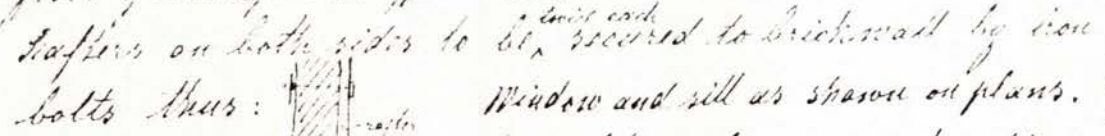 Rafters on both sides to be twice each secured to brickwall by iron
bolts thus: Window and sill as shown on plans.
rafter